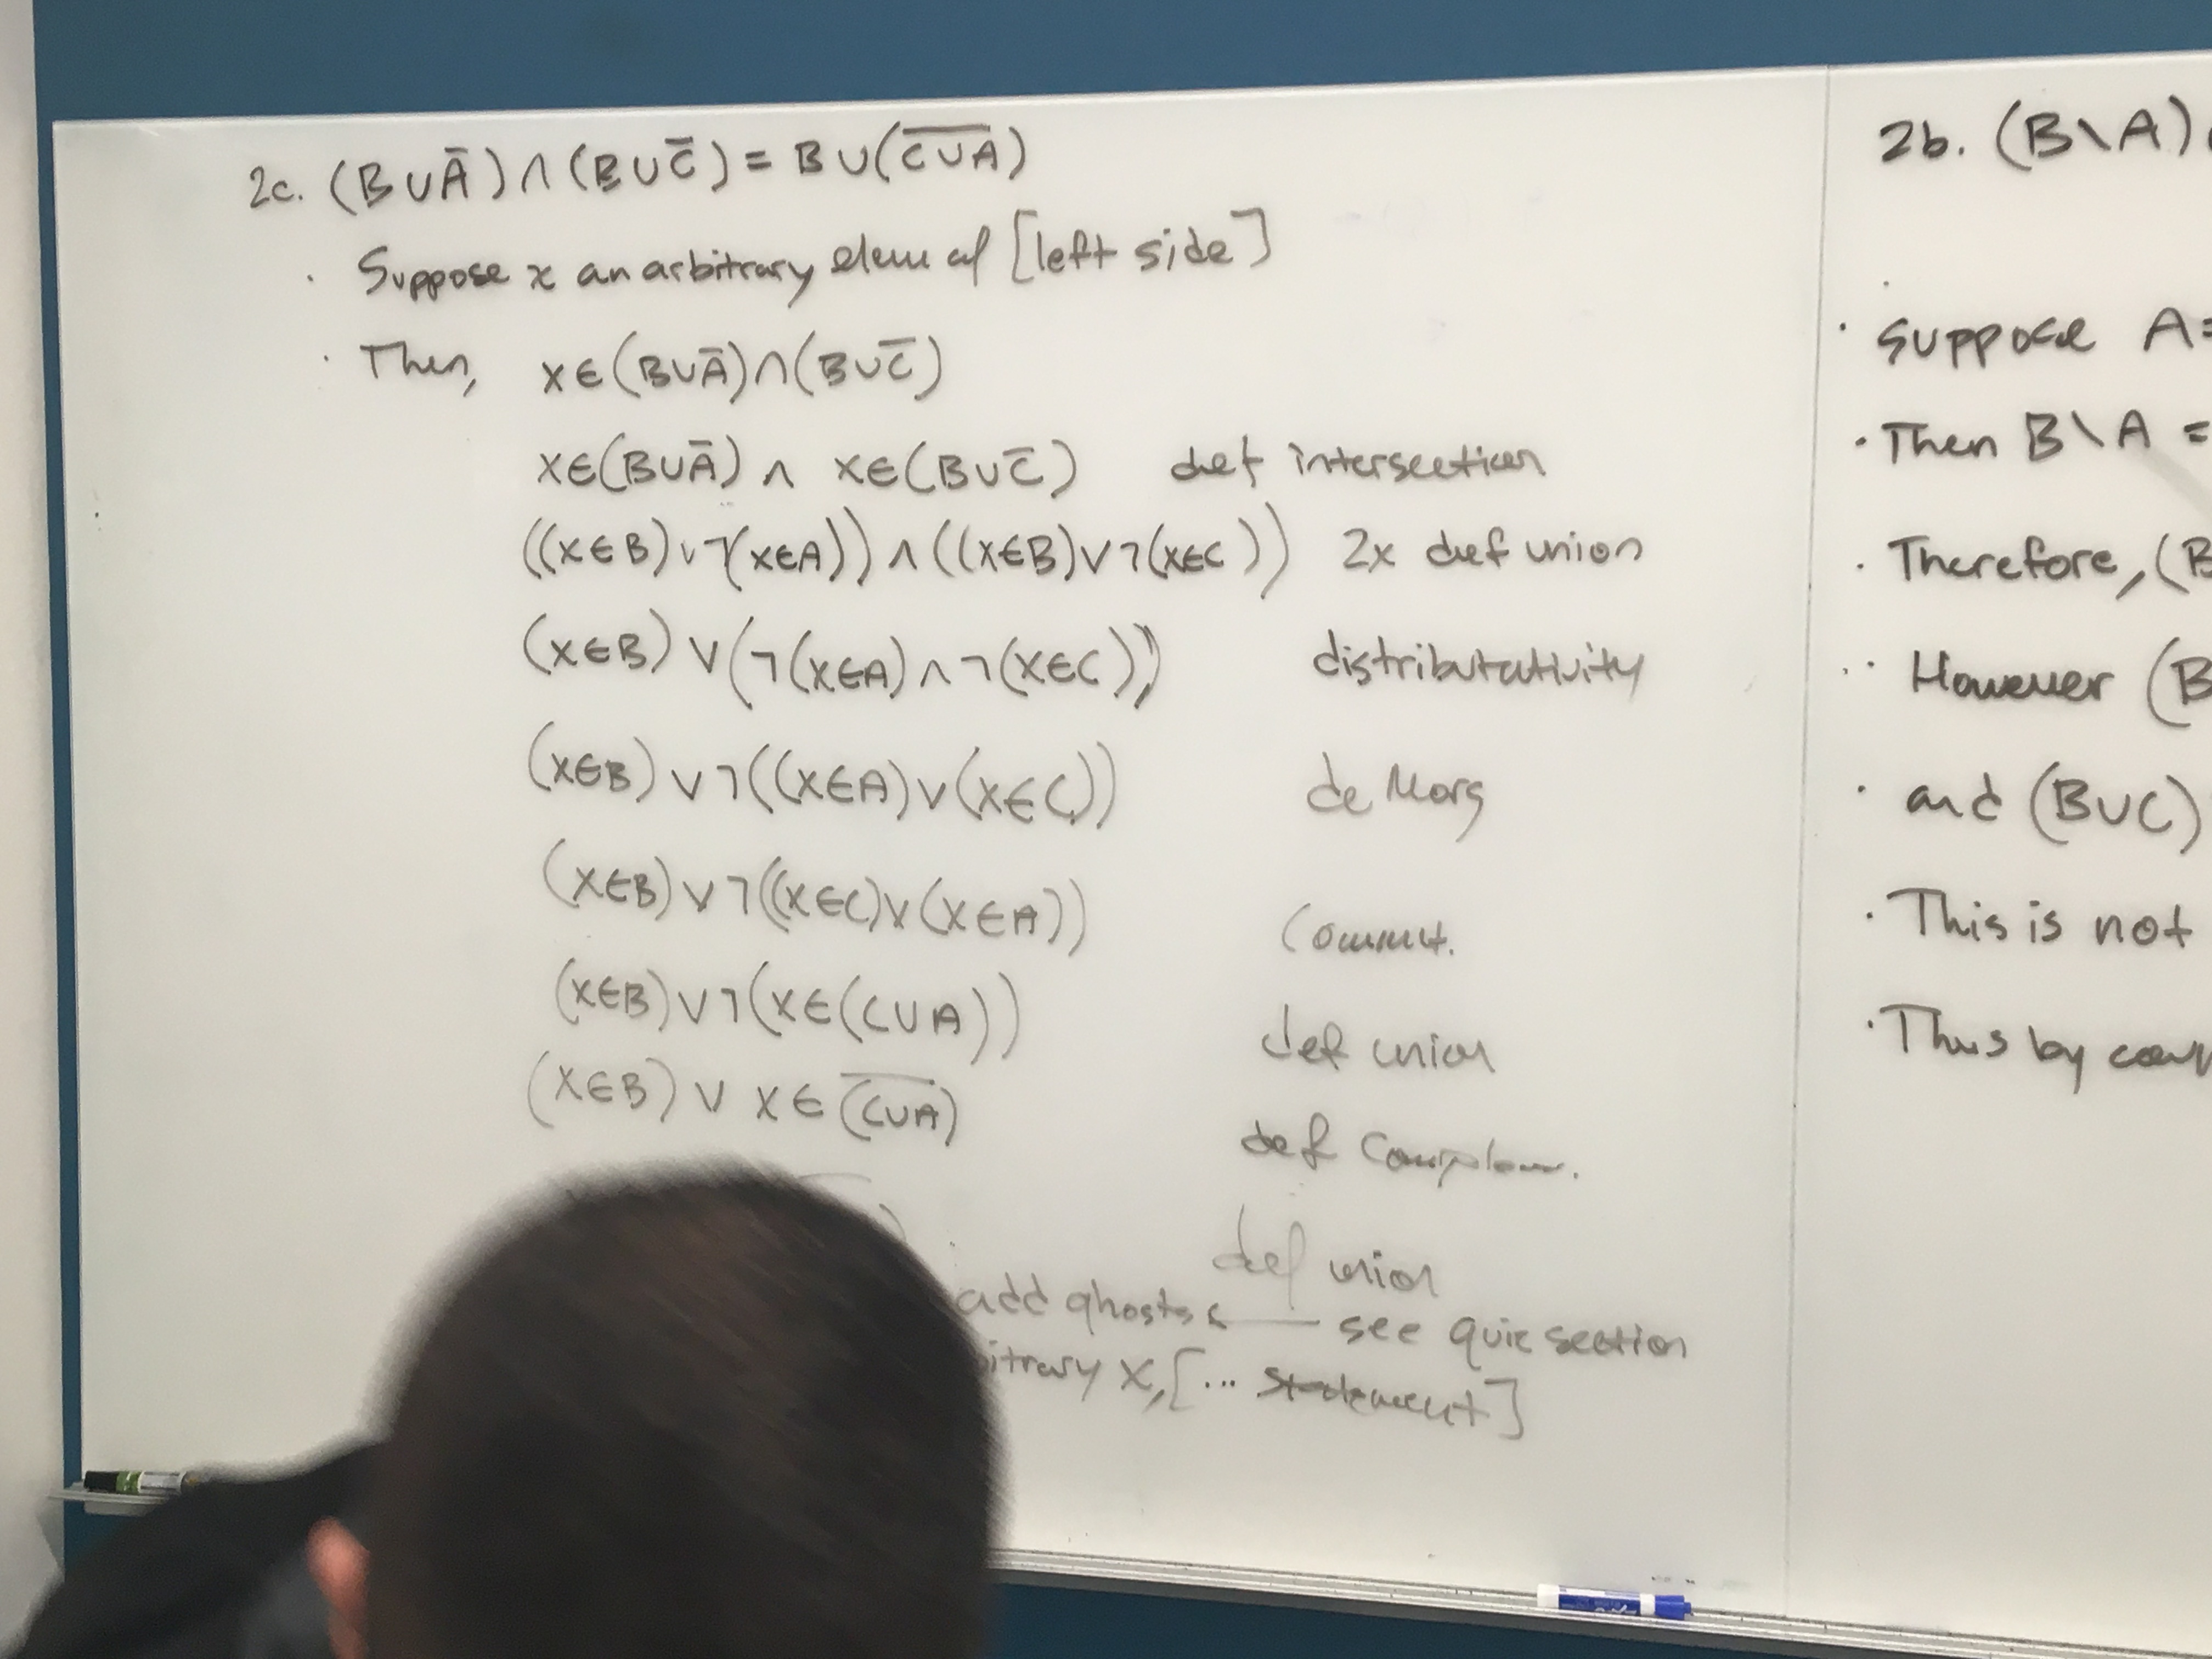 2c. (B∪Ā)∩(B∪C̅) = B∪(C̅∪̅A̅)
· Suppose x an arbitrary elem of [left side]
· Then, x∈(B∪Ā)∩(B∪C̅)
x∈(B∪Ā) ∧ x∈(B∪C̅) def intersection
((x∈B)∨¬(x∈A))∧((x∈B)∨¬(x∈C)) 2x def union
(x∈B)∨(¬(x∈A)∧¬(x∈C)) distributativity
(x∈B)∨¬((x∈A)∨(x∈C)) de Morg
(x∈B)∨¬((x∈C)∨(x∈A)) Commut.
(x∈B)∨¬(x∈(C∪A)) def union
(x∈B)∨ x∈(̅C̅∪̅A̅) def Complem.
def union
add ghosts ← see quiz section
bitrary x,[... statement]
2b. (B\A)
· Suppose A=
· Then B\A =
· Therefore, (B
· However (B
· and (B∪C)
· This is not
· Thus by